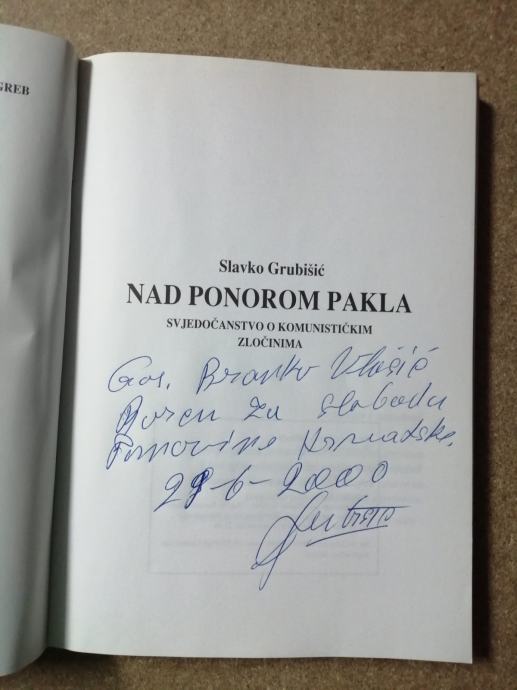 GREB
Slavko Grubišić
NAD PONOROM PAKLA
SVJEDOČANSTVO O KOMUNISTIČKIM
ZLOČINIMA
Gos. Branko Vlašić
Borcu za slobodu
Domovine Hrvatske.
6-2000